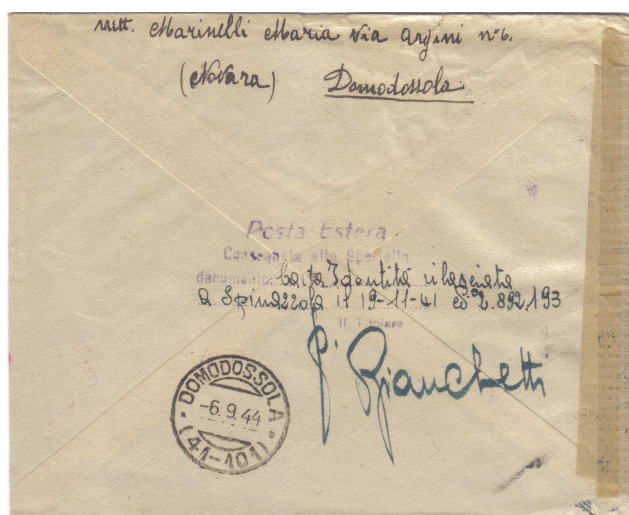 mitt. Marinelli Maria via Argini n° 6.
(Novara) Domodossola
Posta Estera
Consegnata allo Sportello
Carta Identità rilasciata
a Spinazzola il 19-11-41 2.892,193
Il Titolare
Bianchetti
DOMODOSSOLA
-6.9.44
(41-101)